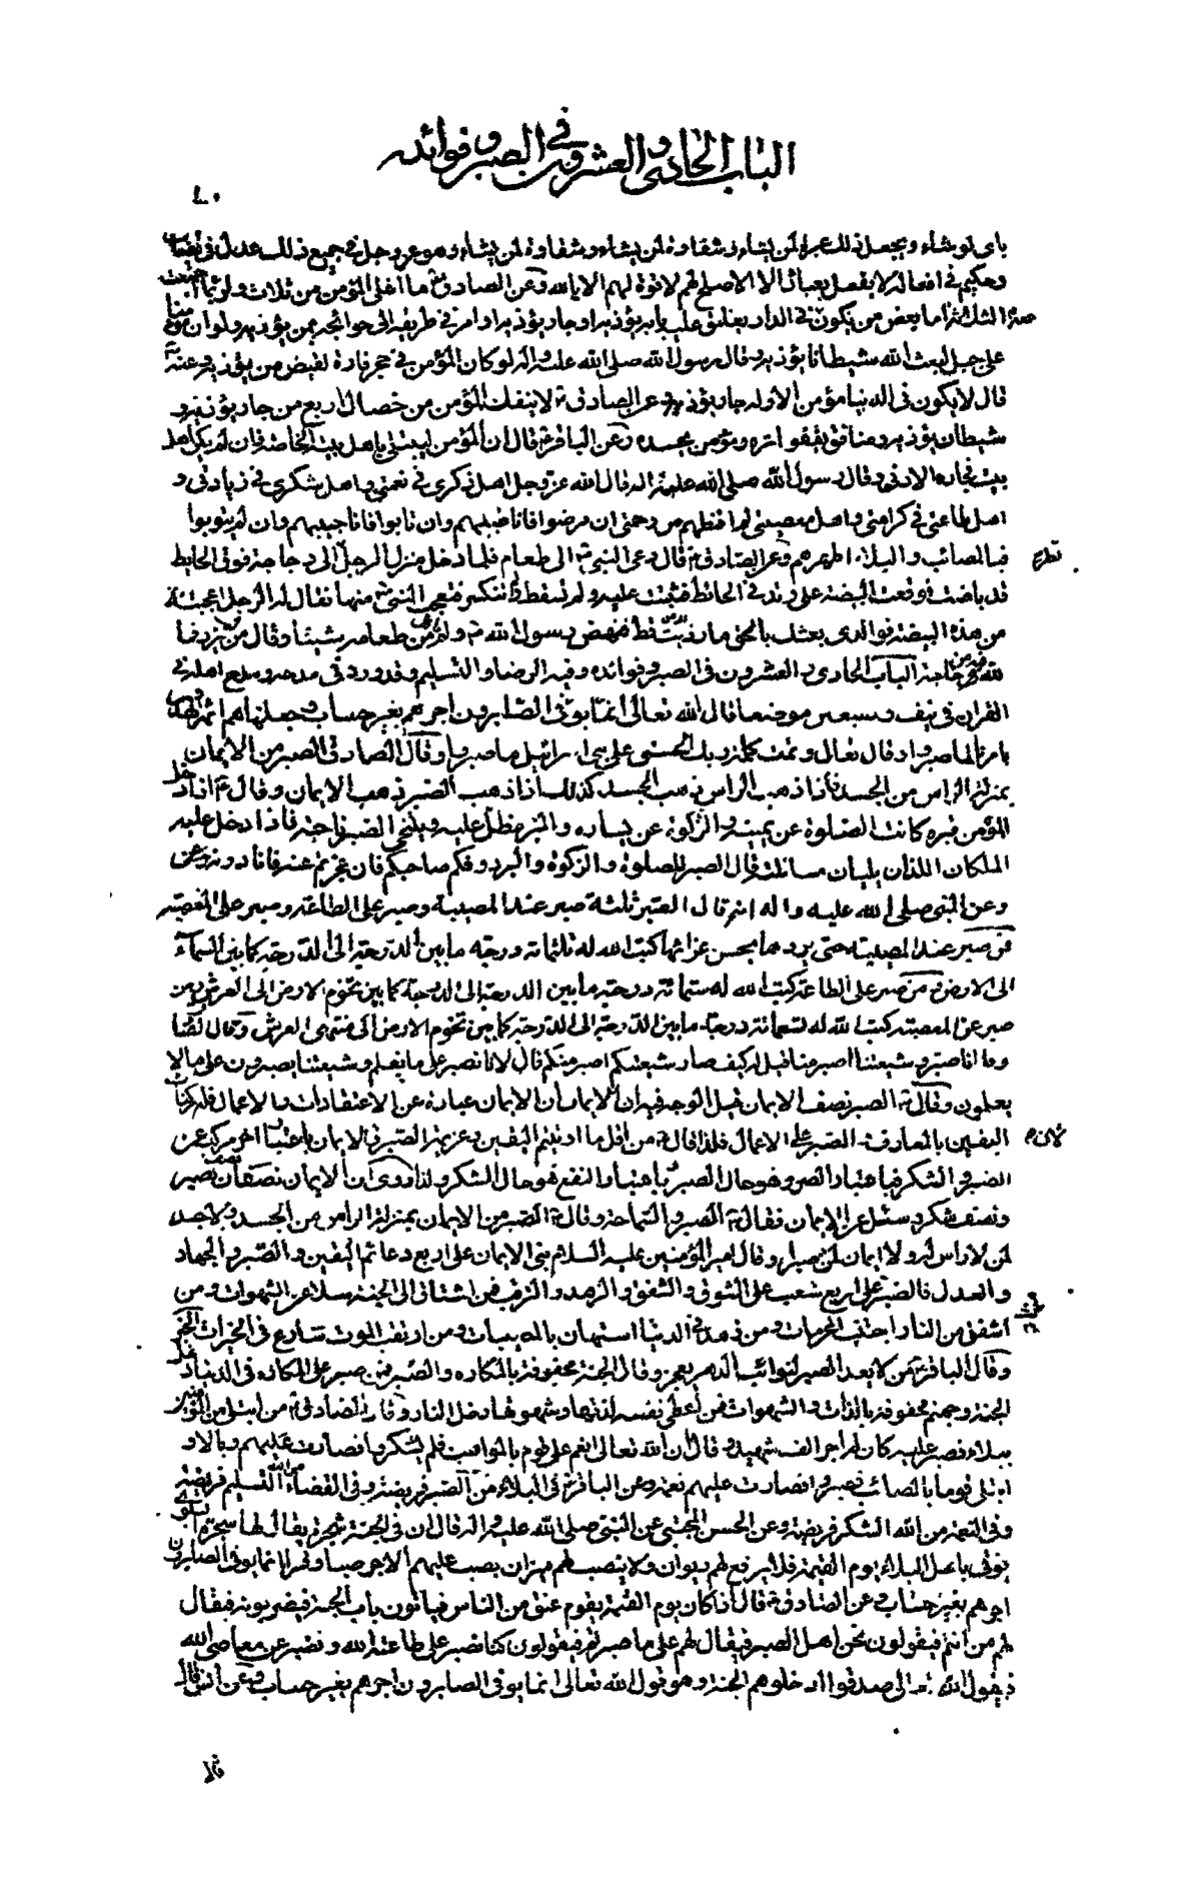 الباب الحادي والعشرون في الصبر وفوائده
٤٠
باى لو يشاء ويجعل ذلك عبرة لمن يشاء وشقاوة لمن يشاء وشقاوة لمن يشاء وهو عز وجل في جميع ذلك عدل في
وحكيم في افعاله لا يفعل بعباده الا الاصلح لهم لا قوة لهم الا بالله وعن الصادق ما اخلى المؤمن من ثلاث ولربما
الثلثة اما بعض من يكون في الدار يغلق عليه بابه يؤذيه او جار يؤذيه او امر في طريقه الى حوائجه من يؤذيه ولو ان مؤمنا
على جبل لبعث الله شيطانا يؤذيه وقال رسول الله صلى الله عليه واله لو كان المؤمن في جحر فارة لقيض من يؤذيه وعنه
قال لا يكون في الدنيا مؤمن الا وله جار يؤذيه وعن الصادق لا ينفك المؤمن من خصال اربع من جار يؤذيه و
شيطان يؤذيه ومنافق يقفو اثره ومؤمن يحسده وعن الباقر قال ان المؤمن ليبتلى باهل بيته الخاصة فان لم يكن اهل
بيته فجاره الادنى وقال رسول الله صلى الله عليه واله قال الله عز وجل اهل ذكري في نعمتي واهل شكري في زيادتي و
اهل طاعتي في كرامتي واهل معصيتي لم اقنطهم من رحمتي ان مرضوا فانا طبيبهم وان تابوا فانا حبيبهم وان لم يتوبوا
فبالمصائب والبلاء اطهرهم وعن الصادق قال دعى النبي الى طعام فلما دخل منزل الرجل الى دجاجة فوق الحايط
قد باضت فوقعت البيضة على وتد في الحائط فثبتت عليه ولم تسقط ولم تنكسر فتعجب النبي منها فقال له الرجل اعجبت
من هذه البيضة فوالذي بعثك بالحق ما رزئت قط فنهض رسول الله ولم ياكل من طعامه شيئا وقال من لم يرزا فما
لله فيه من حاجة الباب الحادي والعشرون في الصبر وفوائده وفيه الرضا والتسليم وقد ورد في مدحه ومدح اهله في
القران في نيف وسبعين موضعا قال الله تعالى انما يوفى الصابرون اجرهم بغير حساب وجعلناهم ائمة يهدون
بامرنا لما صبروا وقال تعالى وتمت كلمة ربك الحسنى على بني اسرائيل بما صبروا وقال الصادق الصبر من الايمان
بمنزلة الراس من الجسد فاذا ذهب الراس ذهب الجسد كذلك اذا ذهب الصبر ذهب الايمان وقال اذا دخل
المؤمن قبره كانت الصلوة عن يمينه والزكوة عن يساره والبر مظل عليه ويتنحى الصبر ناحية فاذا دخل عليه
الملكان اللذان يليان مسائلته قال الصبر للصلوة والزكوة والبر دونكم صاحبكم فان عجزتم عنه فانا دونه وعن
وعن النبي صلى الله عليه واله انه قال الصبر ثلثة صبر عند المصيبة وصبر على الطاعة وصبر على المعصية
فمن صبر عند المصيبة حتى يردها بحسن عزائها كتب الله له ثلثمائة درجة ما بين الدرجة الى الدرجة كما بين السماء
الى الارض ومن صبر على الطاعة كتب الله له ستمائة درجة ما بين الدرجة الى الدرجة كما بين تخوم الارض الى العرش ومن
صبر عن المعصية كتب الله له تسعمائة درجة ما بين الدرجة الى الدرجة كما بين تخوم الارض الى منتهى العرش وقال الصادق
وما انا صبر وشيعتنا اصبر منا قيل له كيف صار شيعتكم اصبر منكم قال لانا نصبر على ما نعلم وشيعتنا يصبرون على ما لا
يعلمون وقال الصبر نصف الايمان قيل الوجه فيه ان الايمان عبارة عن الاعتقادات والاعمال
اليقين بالمعارف الصبر على الاعمال فلذا قال من اقل ما اوتيتم اليقين وعزيمة الصبر في الايمان باعتبار اخر مركب من
الصبر والشكر فباعتبار الضر وهو حال الصبر باعتبار النفع هو حال الشكر ولذا روى ان الايمان نصفان نصف صبر
ونصف شكر وسئل عن الايمان فقال الصبر والسماحة وقال الصبر من الايمان بمنزلة الراس من الجسد ولا جسد
لمن لا راس له ولا ايمان لمن صبر له وقال امير المؤمنين عليه السلام بني الايمان على اربع دعائم اليقين والصبر والجهاد
والعدل فالصبر على اربع شعب على الشوق والشفق والزهد والترقب فمن اشتاق الى الجنة سلا عن الشهوات ومن
اشفق من النار اجتنب المحرمات ومن زهد في الدنيا استهان بالمصيبات ومن ارتقب الموت سارع في الخيرات
وقال الباقر من لا يعد الصبر لنوائب الدهر يعجز وقال الجنة محفوفة بالمكاره والصبر فمن صبر على المكاره في الدنيا دخل
الجنة وجهنم محفوفة باللذات والشهوات فمن اعطى نفسه لذتها وشهوتها دخل النار وقال الصادق من ابتلى من المؤمنين
ببلاء فصبر عليه كان له اجر الف شهيد وقال ان الله تعالى انعم على قوم بالمواهب فلم يشكروا فصارت عليهم وبالا و
ابتلى قوما بالمصائب فصبروا فصارت عليهم نعمة وعن الباقر في البلاء من الله الصبر فريضة وفي القضاء من الله التسليم فريضة
وفي النعمة من الله الشكر فريضة وعن الحسن المجتبى عن النبي صلى الله عليه واله قال ان في الجنة شجرة يقال لها شجرة البلوى
يؤتى باهل البلاء يوم القيمة فلا يرفع لهم ديوان ولا ينصب لهم ميزان يصب عليهم الاجر صبا وقرا انما يوفى الصابرون
اجرهم بغير حساب وعن الصادق قال اذا كان يوم القيمة يقوم عنق من الناس فياتون باب الجنة فيضربونه فيقال
لهم من انتم فيقولون نحن اهل الصبر فيقال لهم على ما صبرتم فيقولون كنا نصبر على طاعة الله ونصبر عن معاصي الله
فيقول الله تعالى صدقوا ادخلوهم الجنة وهو قول الله تعالى انما يوفى الصابرون اجرهم بغير حساب وعن
قال